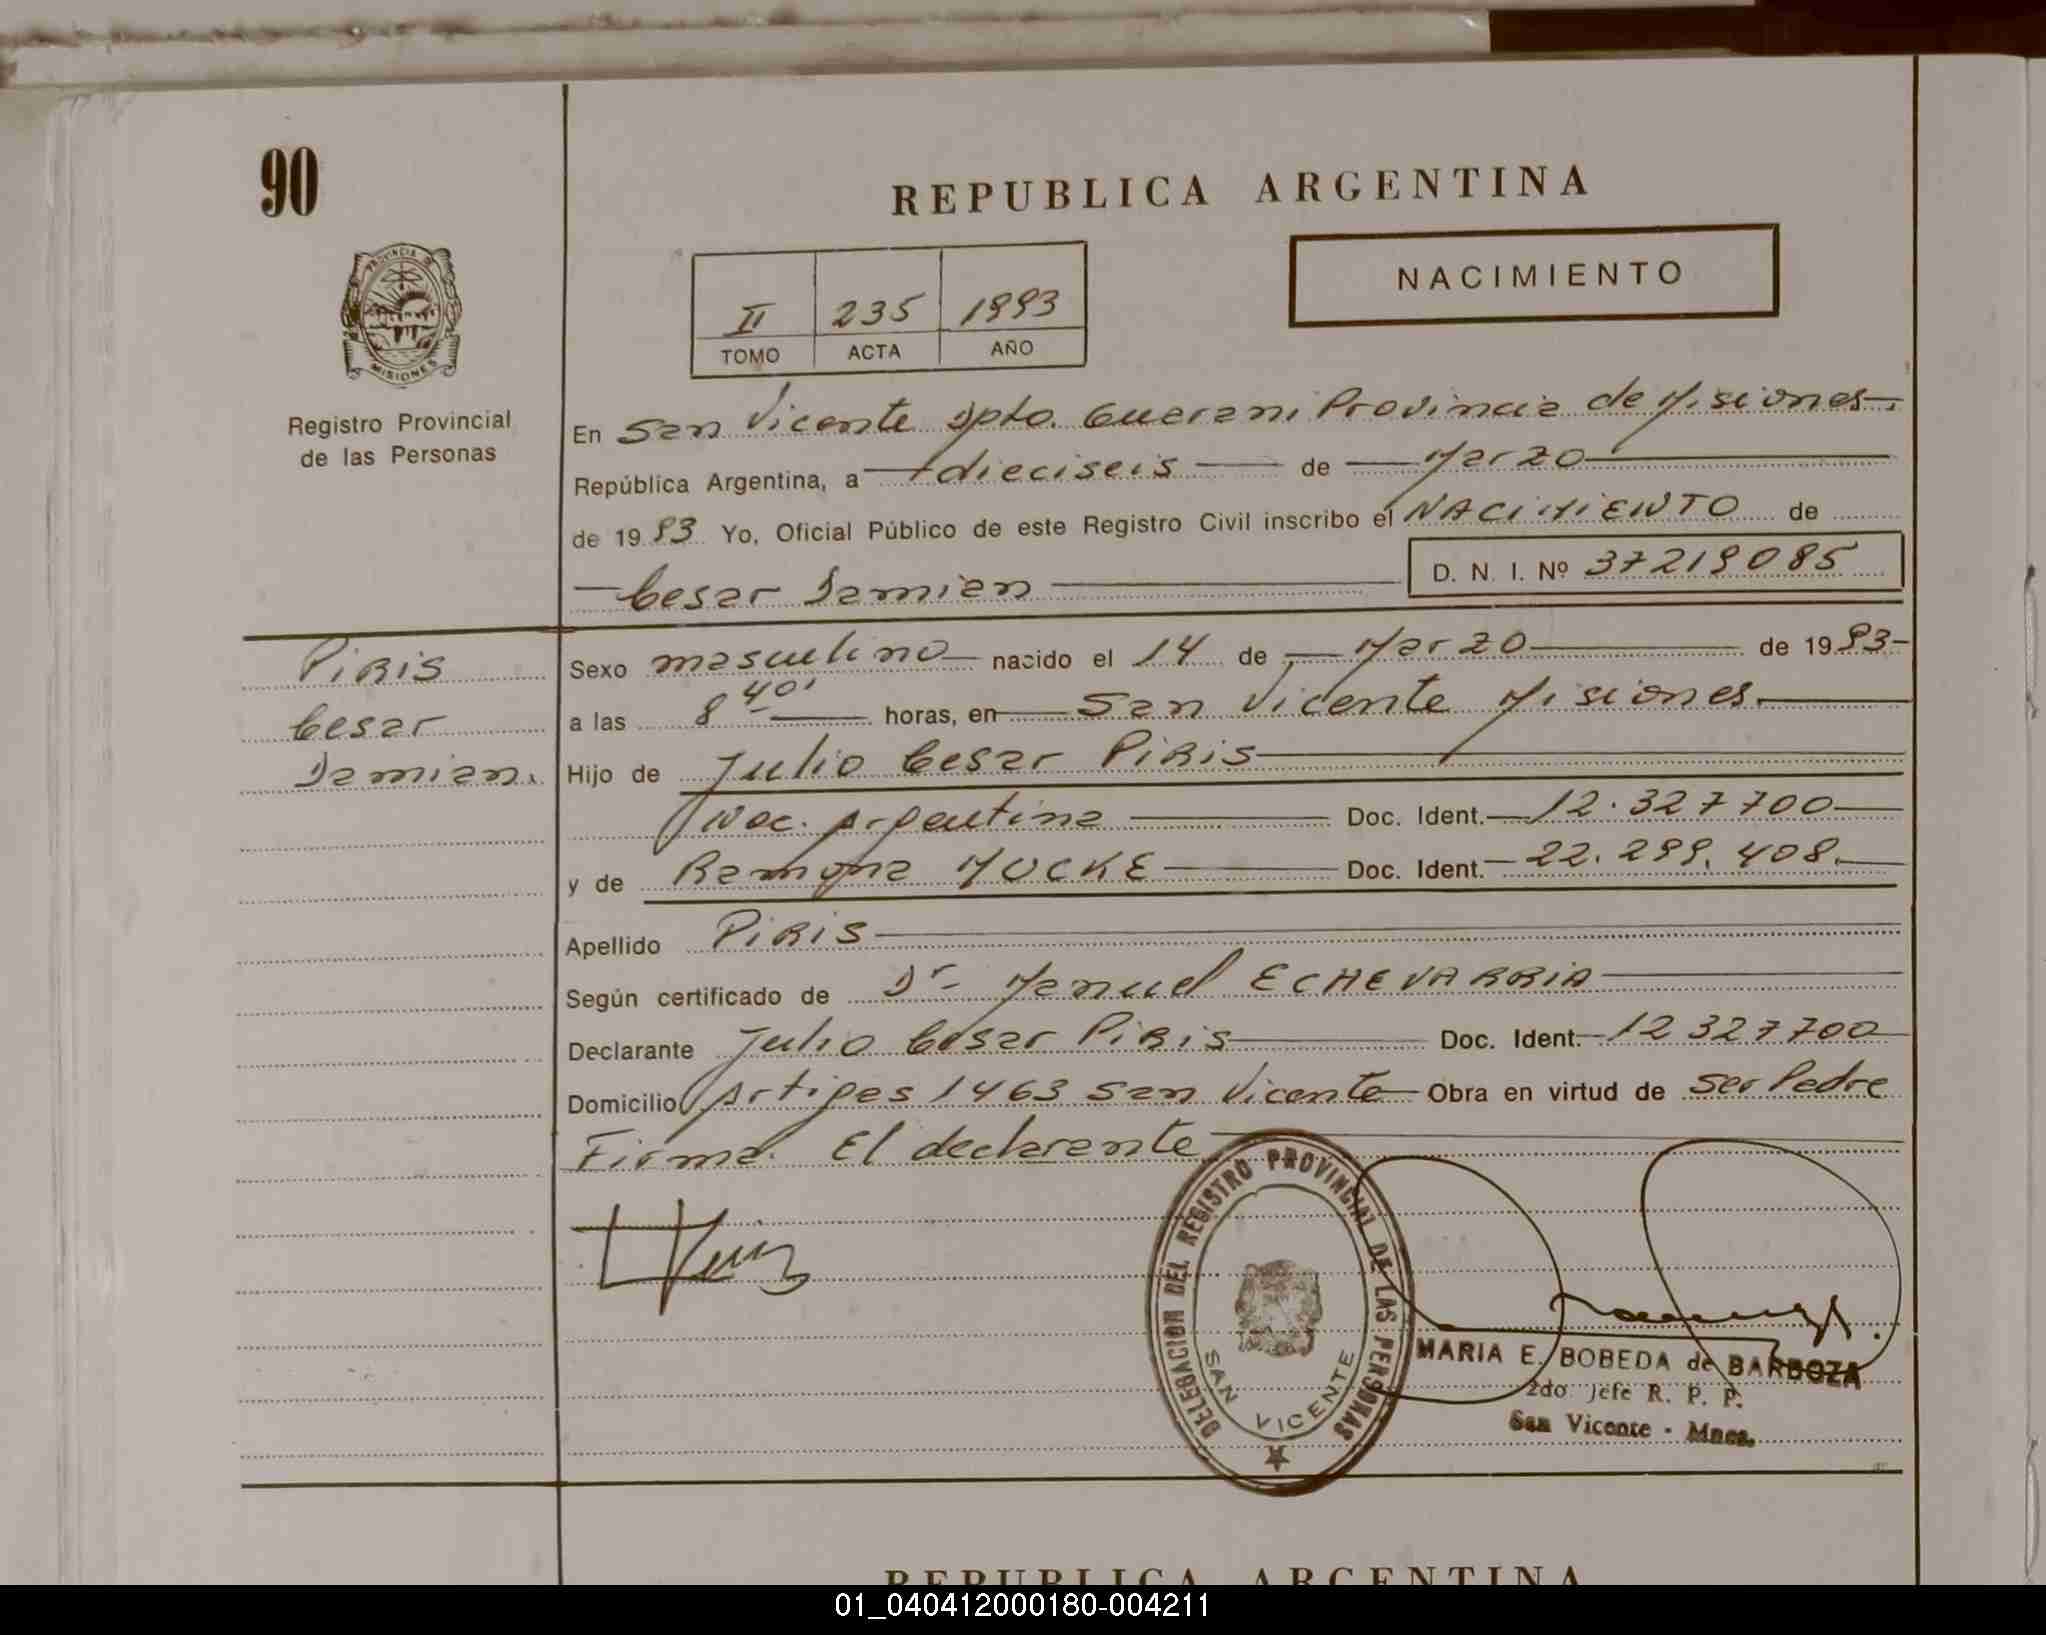 90
REPUBLICA ARGENTINA
NACIMIENTO
II 235 1993
TOMO ACTA AÑO
PROVINCIA D MISIONES
Registro Provincial
de las Personas
En San Vicente Dpto. Guarani Provincia de Misiones.
República Argentina, a dieciseis de Marzo
de 1993 Yo, Oficial Público de este Registro Civil inscribo el NACIMIENTO de
Cesar Damian D. N. I. Nº 37219085
PIRIS
Cesar
Damian.
Sexo masculino nacido el 14 de Marzo de 1993
a las 8 40' horas, en San Vicente Misiones.
Hijo de Julio Cesar PIRIS
Nac. Argentina Doc. Ident. 12.327700
y de Ramona MUCKE Doc. Ident. 22.299.408.
Apellido PIRIS
Según certificado de Dr Manuel ECHEVARRIA
Declarante Julio Cesar PIRIS Doc. Ident. 12 327700
Domicilio Artigas 1463 San Vicente Obra en virtud de Ser Padre
Firma. El declarante
DELEGACION DEL REGISTRO PROVINCIAL DE LAS PERSONAS
SAN VICENTE
MARIA E. BOBEDA de BARBOZA
2do Jefe R. P. P.
San Vicente - Mnes.
REPUBLICA ARGENTINA
01_040412000180-004211